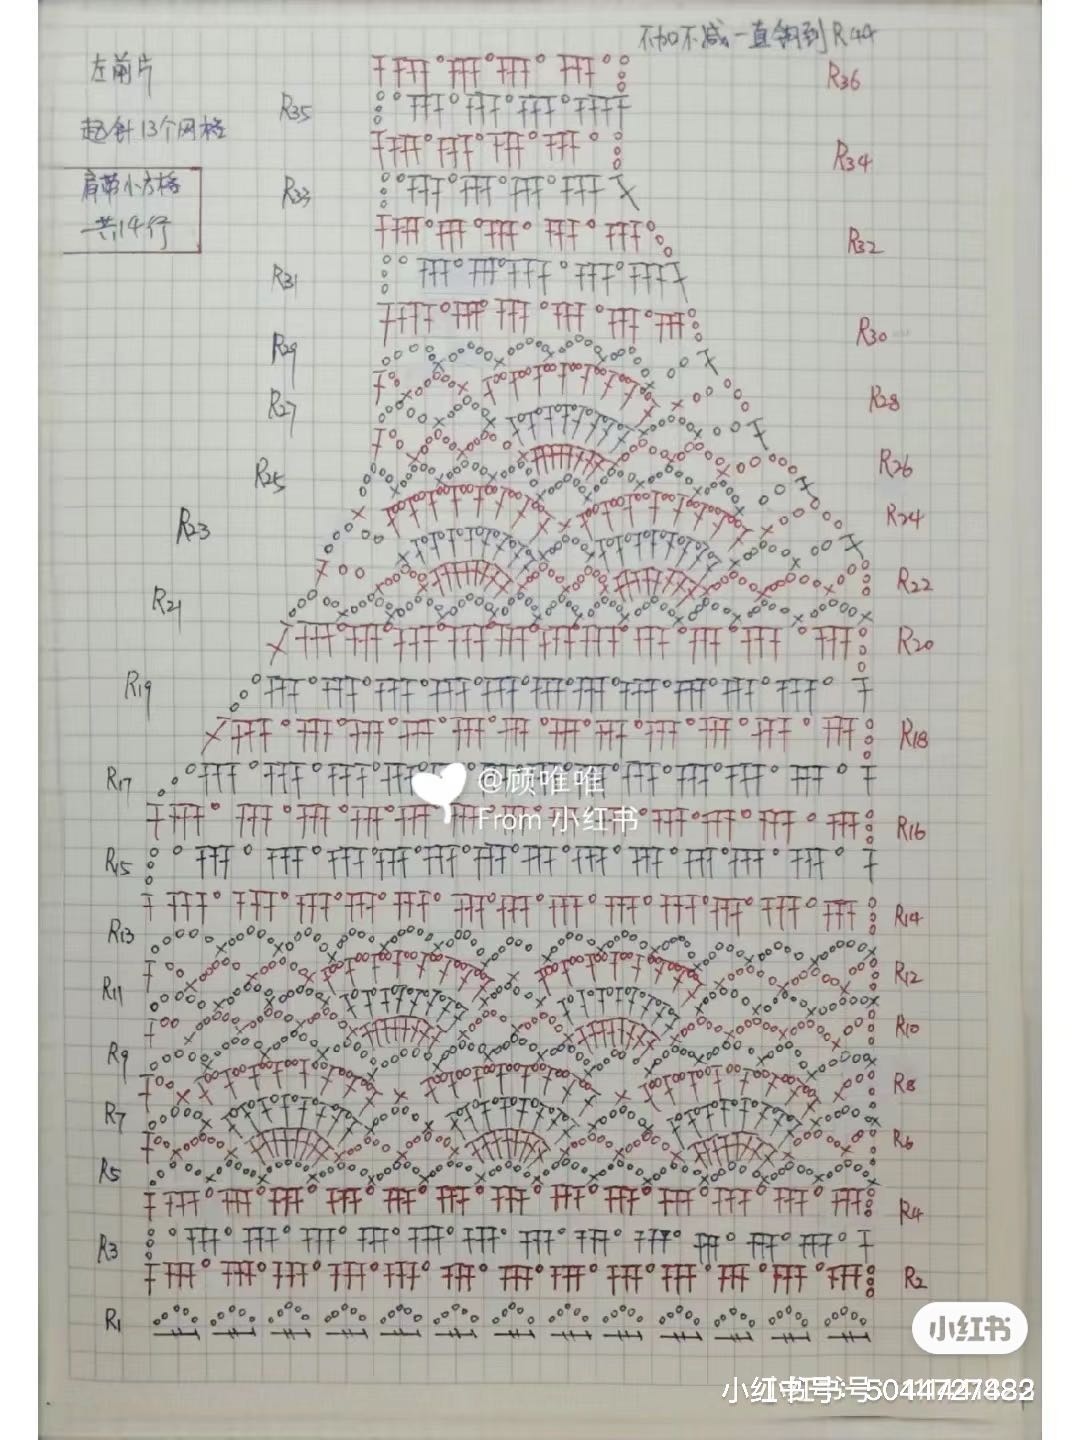 不加不减一直钩到R44
左前片
R36
R35
起针13个网格
R34
肩带小方格
R33
共14行
R32
R31
R30
R29
R28
R27
R26
R25
R24
R23
R22
R21
R20
R19
R18
R17
@顾唯唯
From 小红书
R16
R15
R14
R13
R12
R11
R10
R9
R8
R7
R6
R5
R4
R3
R2
R1
小红书
小红书号：